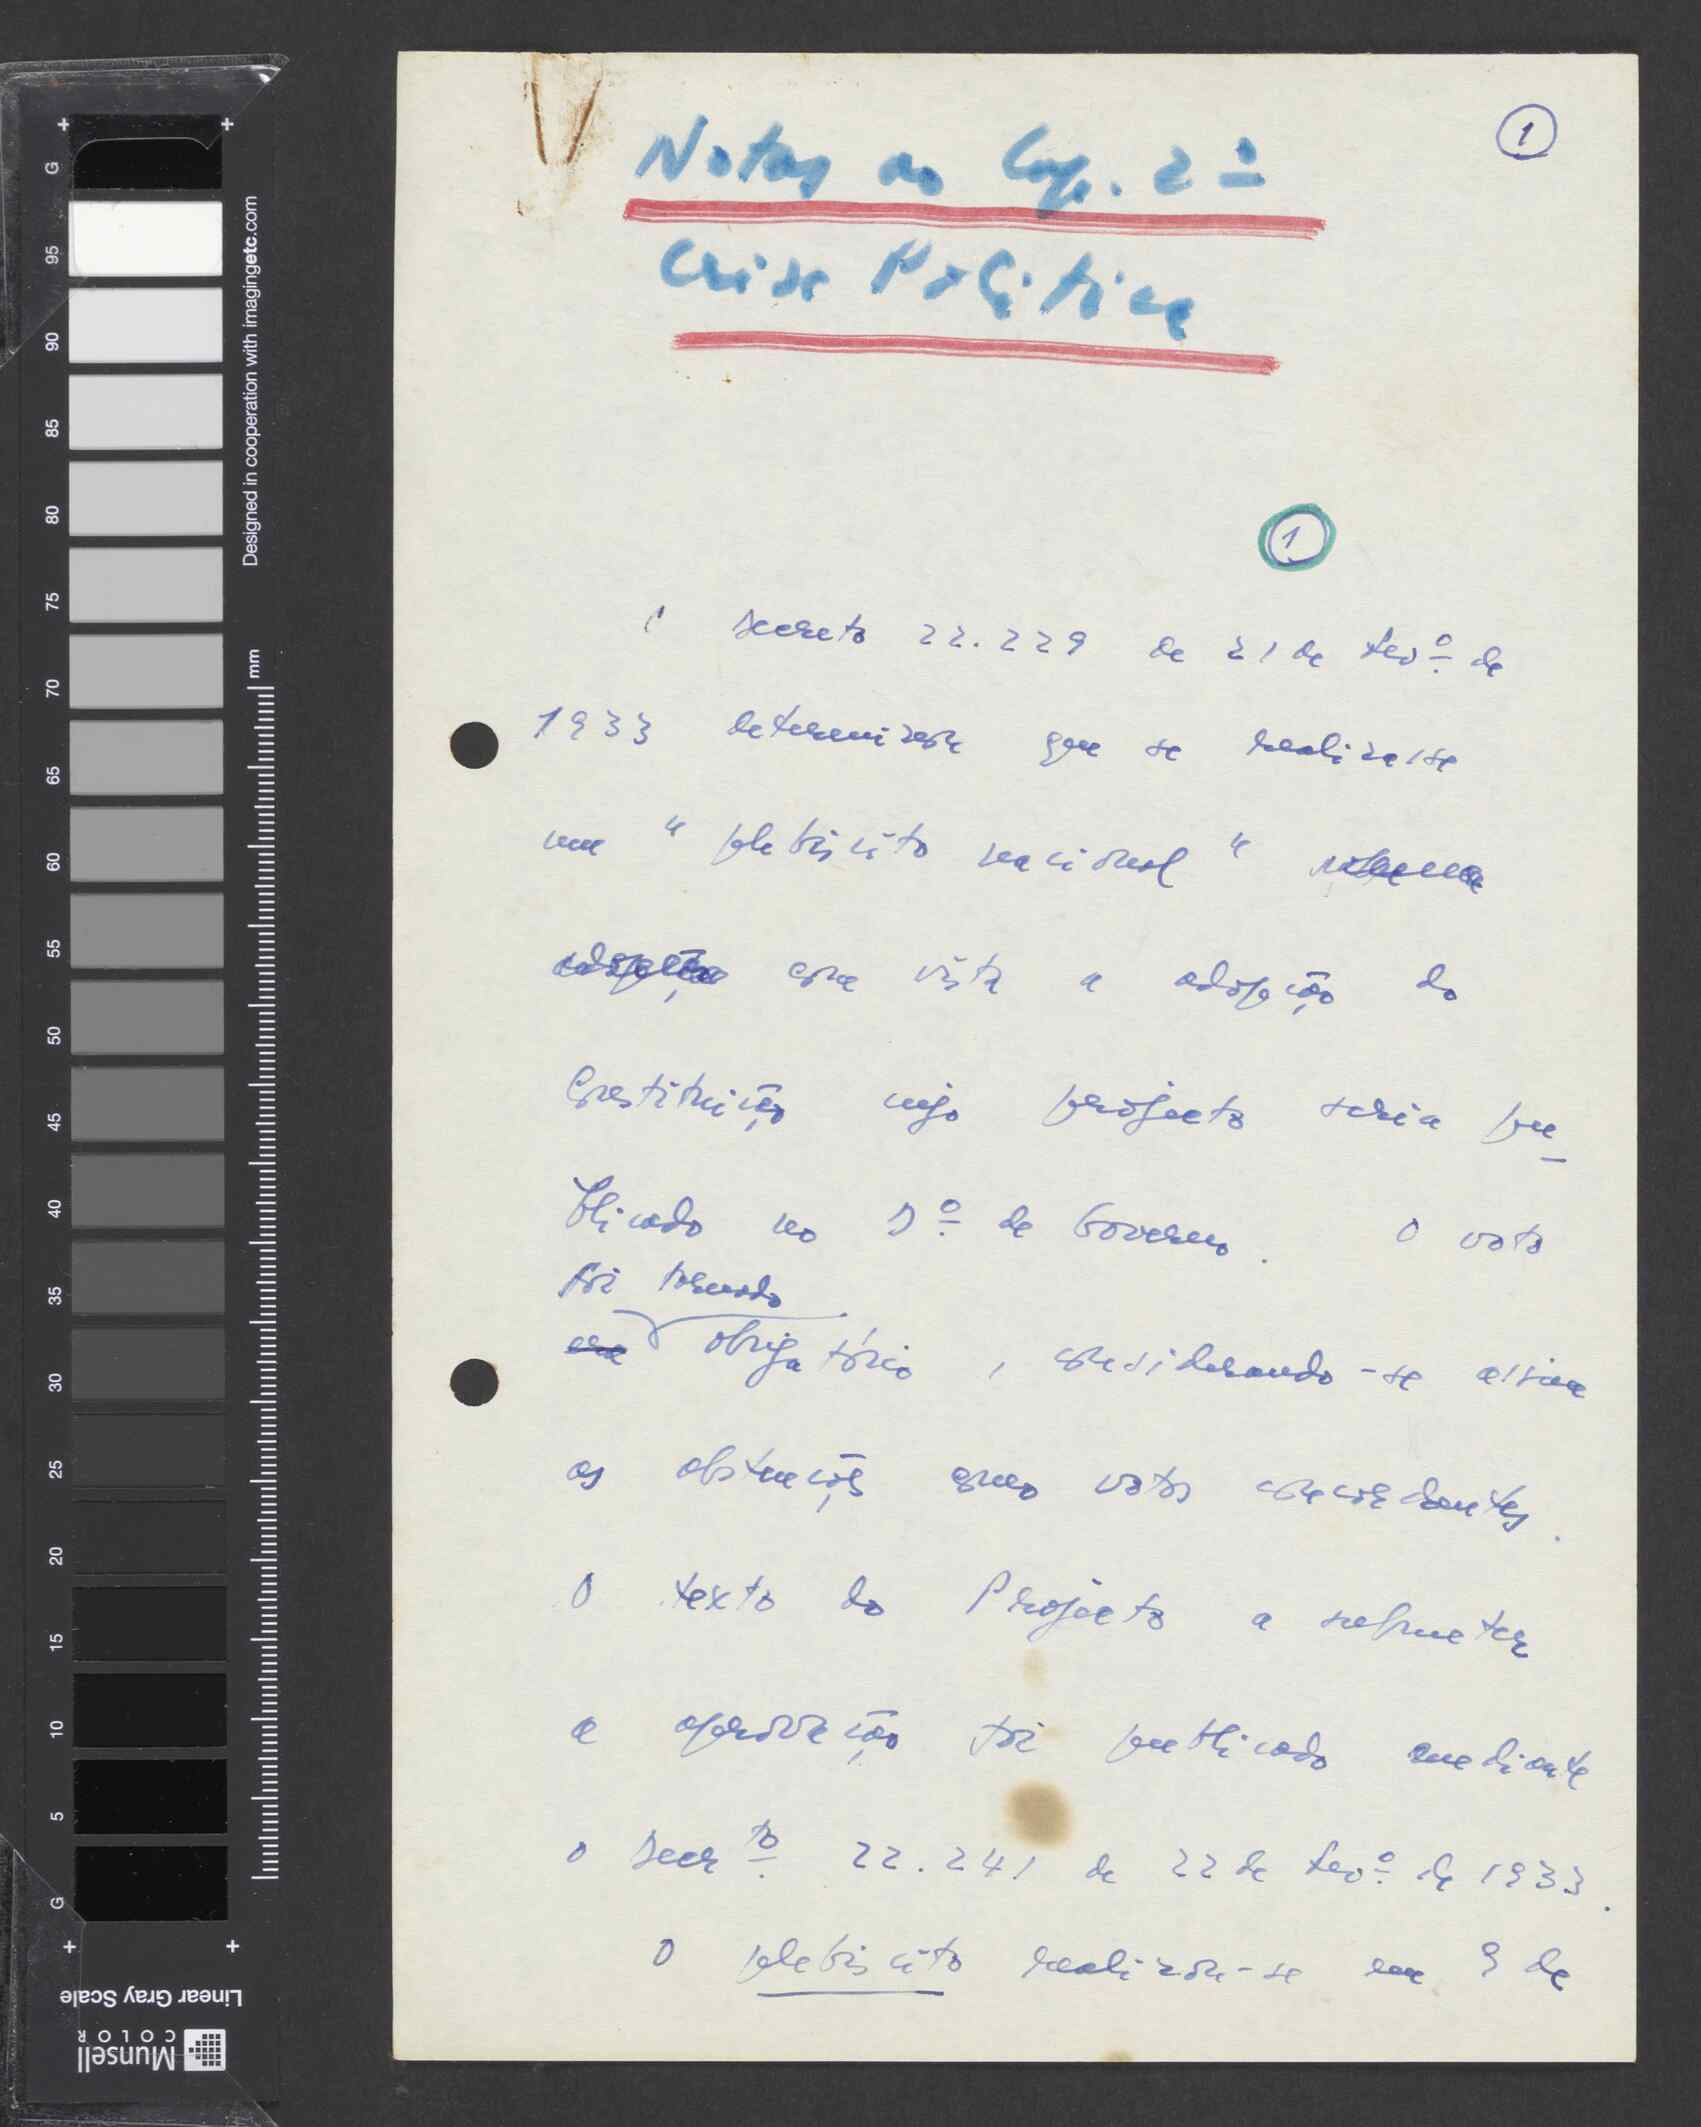 1
Notas ao Cap. 2º
Crise Política
1
O Decreto 22.229 de 21 de Fevº. de
1933 determinou que se realizasse
um "plebiscito nacional"
adopção com vista a adopção da
Constituição cujo projecto seria pu-
blicado no Dº. de Governo. O voto
foi tornado
era obrigatório, considerando-se assim
as abstenções como votos concordantes.
O texto do Projecto a submeter
a aprovação foi publicado mediante
o Decrto. 22.241 de 22 de Fevº. de 1933.
O plebiscito realizou-se em 9 de
G
95
90
85
80
75
70
65
60
55
50
45
40
35
30
25
20
15
10
5
G
Designed in cooperation with imagingetc.com
mm
Linear Gray Scale
Munsell
COLOR